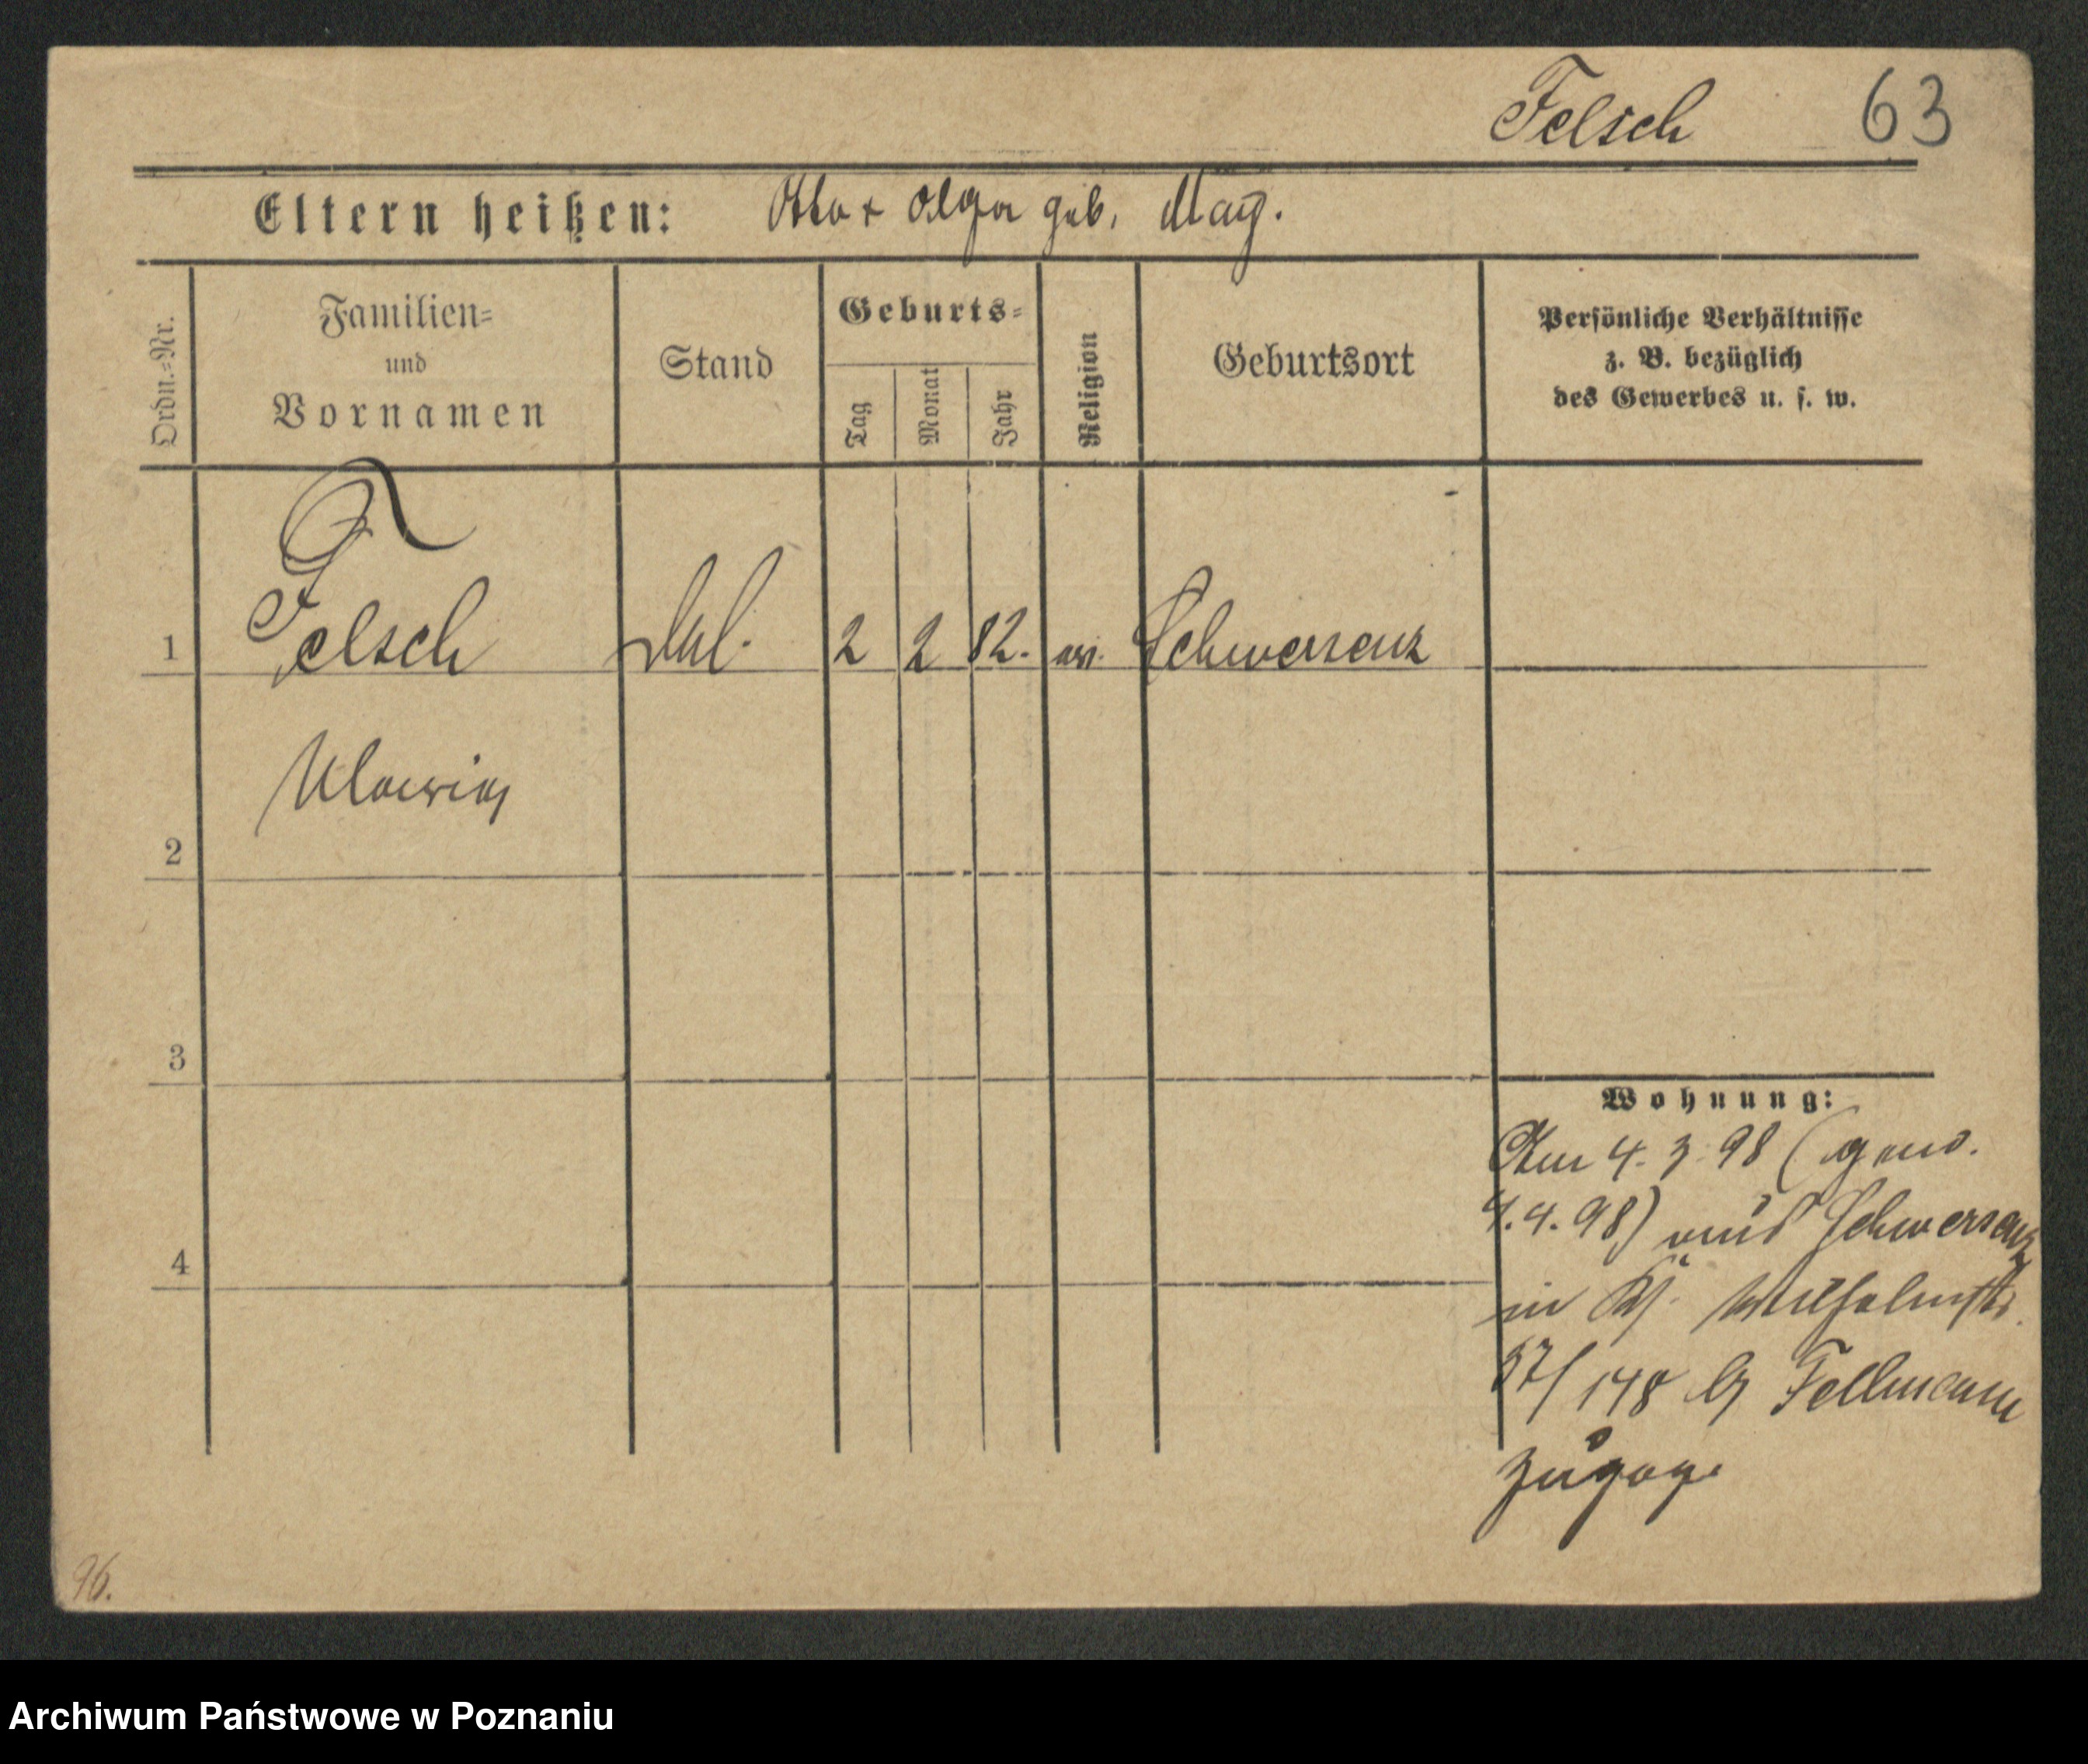 Felsch 63
Eltern heißen: Otto + Olga geb. May.
Ordn.=Nr.
Familien=
und
Vornamen
Stand
Geburts=
Tag
Monat
Jahr
Religion
Geburtsort
Persönliche Verhältnisse
z. B. bezüglich
des Gewerbes u. s. w.
1 Felsch 2 2 82. ev. Schwersenz
2
3
4
Wohnung:
Am 4. 3. 98 (gem.
4.4.98) aus Schwersenz
in Wilhelmstr.
37/148 b/ Fellmann
zugez.
96.
Archiwum Państwowe w Poznaniu